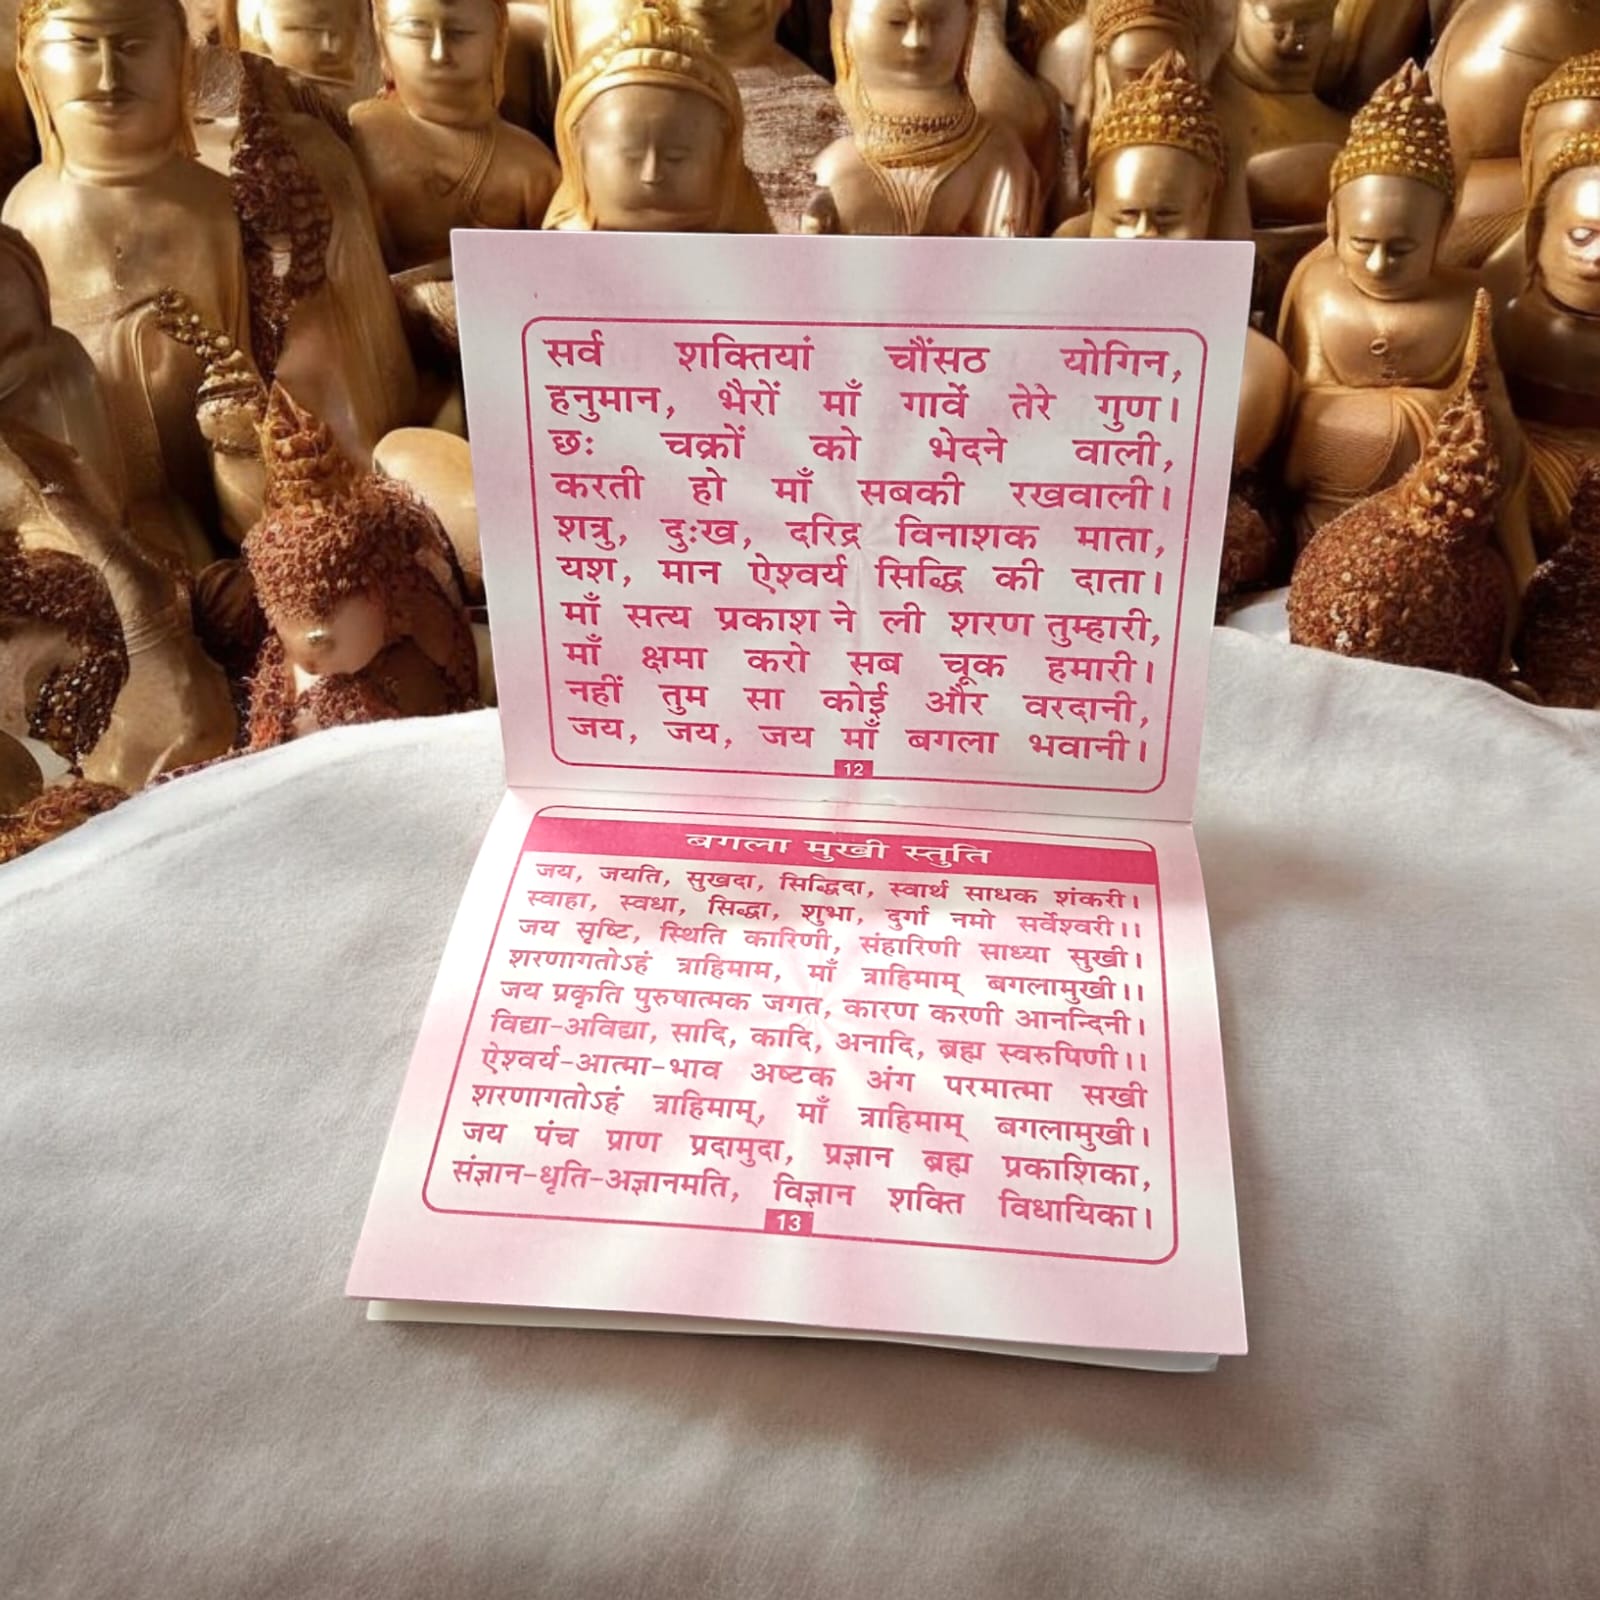 सर्व शक्तियां चौंसठ योगिन,
हनुमान, भैरों माँ गावें तेरे गुण।
छः चक्रों को भेदने वाली,
करती हो माँ सबकी रखवाली।
शत्रु, दुःख, दरिद्र विनाशक माता,
यश, मान ऐश्वर्य सिद्धि की दाता।
माँ सत्य प्रकाश ने ली शरण तुम्हारी,
माँ क्षमा करो सब चूक हमारी।
नहीं तुम सा कोई और वरदानी,
जय, जय, जय माँ बगला भवानी।
12
बगला मुखी स्तुति
जय, जयति, सुखदा, सिद्धिदा, स्वार्थ साधक शंकरी।
स्वाहा, स्वधा, सिद्धा, शुभा, दुर्गा नमो सर्वेश्वरी।।
जय सृष्टि, स्थिति कारिणी, संहारिणी साध्या सुखी।
शरणागतोऽहं त्राहिमाम, माँ त्राहिमाम् बगलामुखी।।
जय प्रकृति पुरुषात्मक जगत, कारण करणी आनन्दिनी।
विद्या-अविद्या, सादि, कादि, अनादि, ब्रह्म स्वरुपिणी।।
ऐश्वर्य-आत्मा-भाव अष्टक अंग परमात्मा सखी
शरणागतोऽहं त्राहिमाम्, माँ त्राहिमाम् बगलामुखी।
जय पंच प्राण प्रदामुदा, प्रज्ञान ब्रह्म प्रकाशिका,
संज्ञान-धृति-अज्ञानमति, विज्ञान शक्ति विधायिका।
13